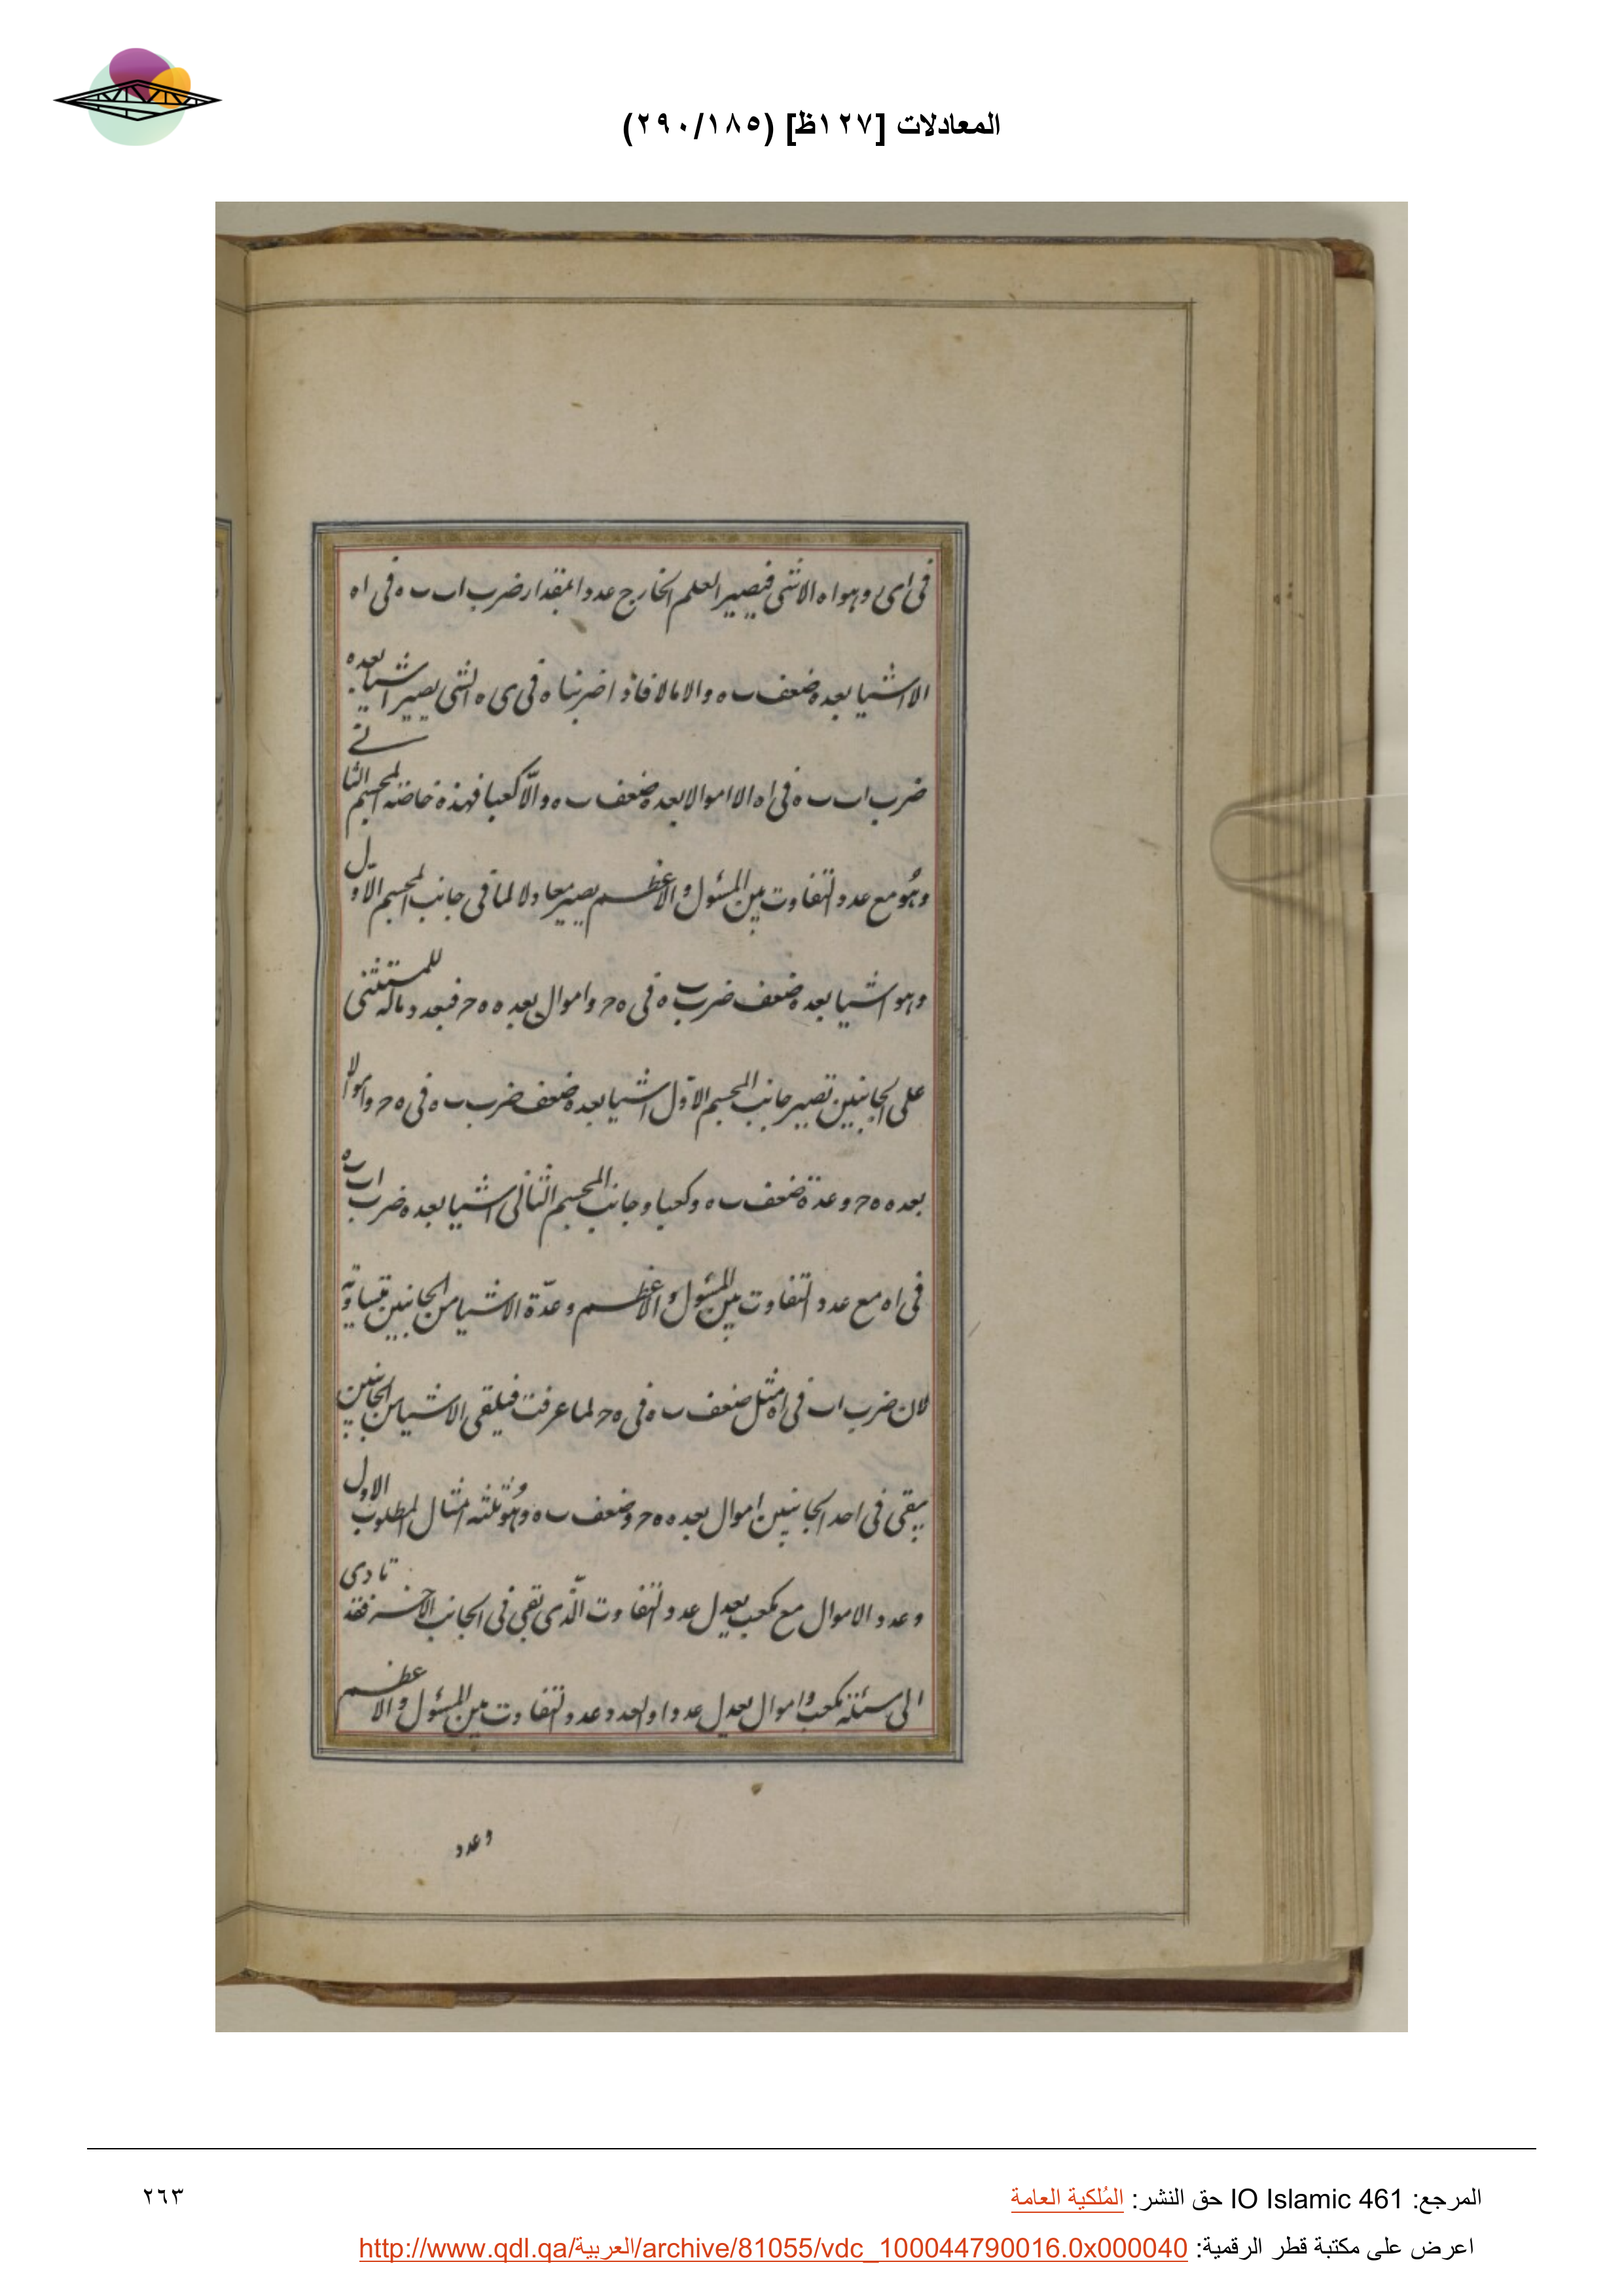 المعادلات [١٢٧ظ] (٢٩٠/١٨٥)
فى اى وهو اه الاشئى فيصير العلم الخارج عددا بمقدار ضرب اب ٮه فى اه
الا اشيا بعده ضعف ٮه والا مالا فاذا ضربناه فى ى ه الشى يصير اشيا بعده
ضرب اب ٮه فى اه الا اموالا بعده ضعف ٮه والّا كعبا فهذه خاصته المجسم الثانے
وهو مع عدد التفاوت بين المسئول والاعظم يصير معادلا لما فى جانب المجسم الاول
وهو اشيا بعده ضعف ضرب ٮه فى ه ح واموال بعده ه ح فبعد وماله للمستثنى
على الجانبين تصير جانب المجسم الاول اشيا بعده ضعف ضرب ٮه فى ه ح واموالا
بعده ه ح وعدة ضعف ٮه وكعبا وجانب المجسم الثانى اشيا بعده ضرب اب ٮه
فى اه مع عدد التفاوت بين المسئول والاعظم وعدّة الاشيا من الجانبين متساوية
لان ضرب اب فى اه مثل ضعف ٮه فى ه ح لما عرفت فيلقى الاشيا من الجانبين
يبقى فى احد الجانبين اموال بعده ه ح وضعف ٮه وهو ثلثه امثال المطلوب الاول
وعدد الاموال مع مكعب يعدل عدد التفاوت الّذى بقى فى الجانب الاخر فقد تادى
الى مسئلة مكعب واموال يعدل عددا والعدد عدد التفاوت بين المسئول والاعظم
وعدد
المرجع: IO Islamic 461 حق النشر: المُلكية العامة
٢٦٣
اعرض على مكتبة قطر الرقمية: http://www.qdl.qa/العربية/archive/81055/vdc_100044790016.0x000040